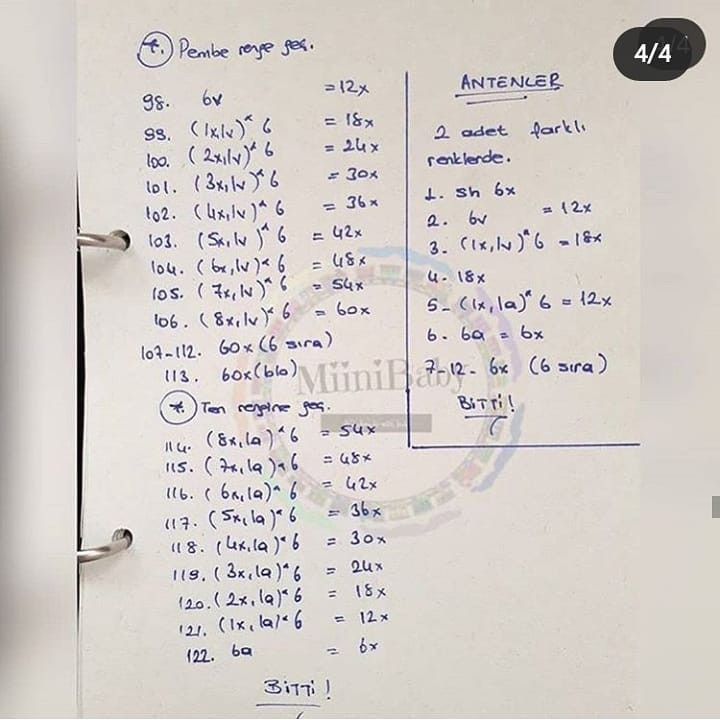 4/4
*. Pembe renge geç.
98. 6v = 12x
99. (1x1v)* 6 = 18x
100. (2x1v)* 6 = 24x
101. (3x,1v)* 6 = 30x
102. (4x,1v)* 6 = 36x
103. (5x,1v)* 6 = 42x
104. (6x,1v)* 6 = 48x
105. (7x,1v)* 6 = 54x
106. (8x,1v)* 6 = 60x
107-112. 60x (6 sıra)
113. 60x (blo)
*. Ten rengine geç.
114. (8x,1a)* 6 = 54x
115. (7x,1a)* 6 = 48x
116. (6x,1a)* 6 = 42x
117. (5x,1a)* 6 = 36x
118. (4x,1a)* 6 = 30x
119. (3x,1a)* 6 = 24x
120. (2x,1a)* 6 = 18x
121. (1x,1a)* 6 = 12x
122. 6a = 6x
BiTTi!
ANTENLER
2 adet farklı
renklerde.
1. sh 6x
2. 6v = 12x
3. (1x,1v)* 6 = 18x
4. 18x
5- (1x,1a)* 6 = 12x
6. 6a = 6x
7-12- 6x (6 sıra)
BiTTi!
MiiniBaby